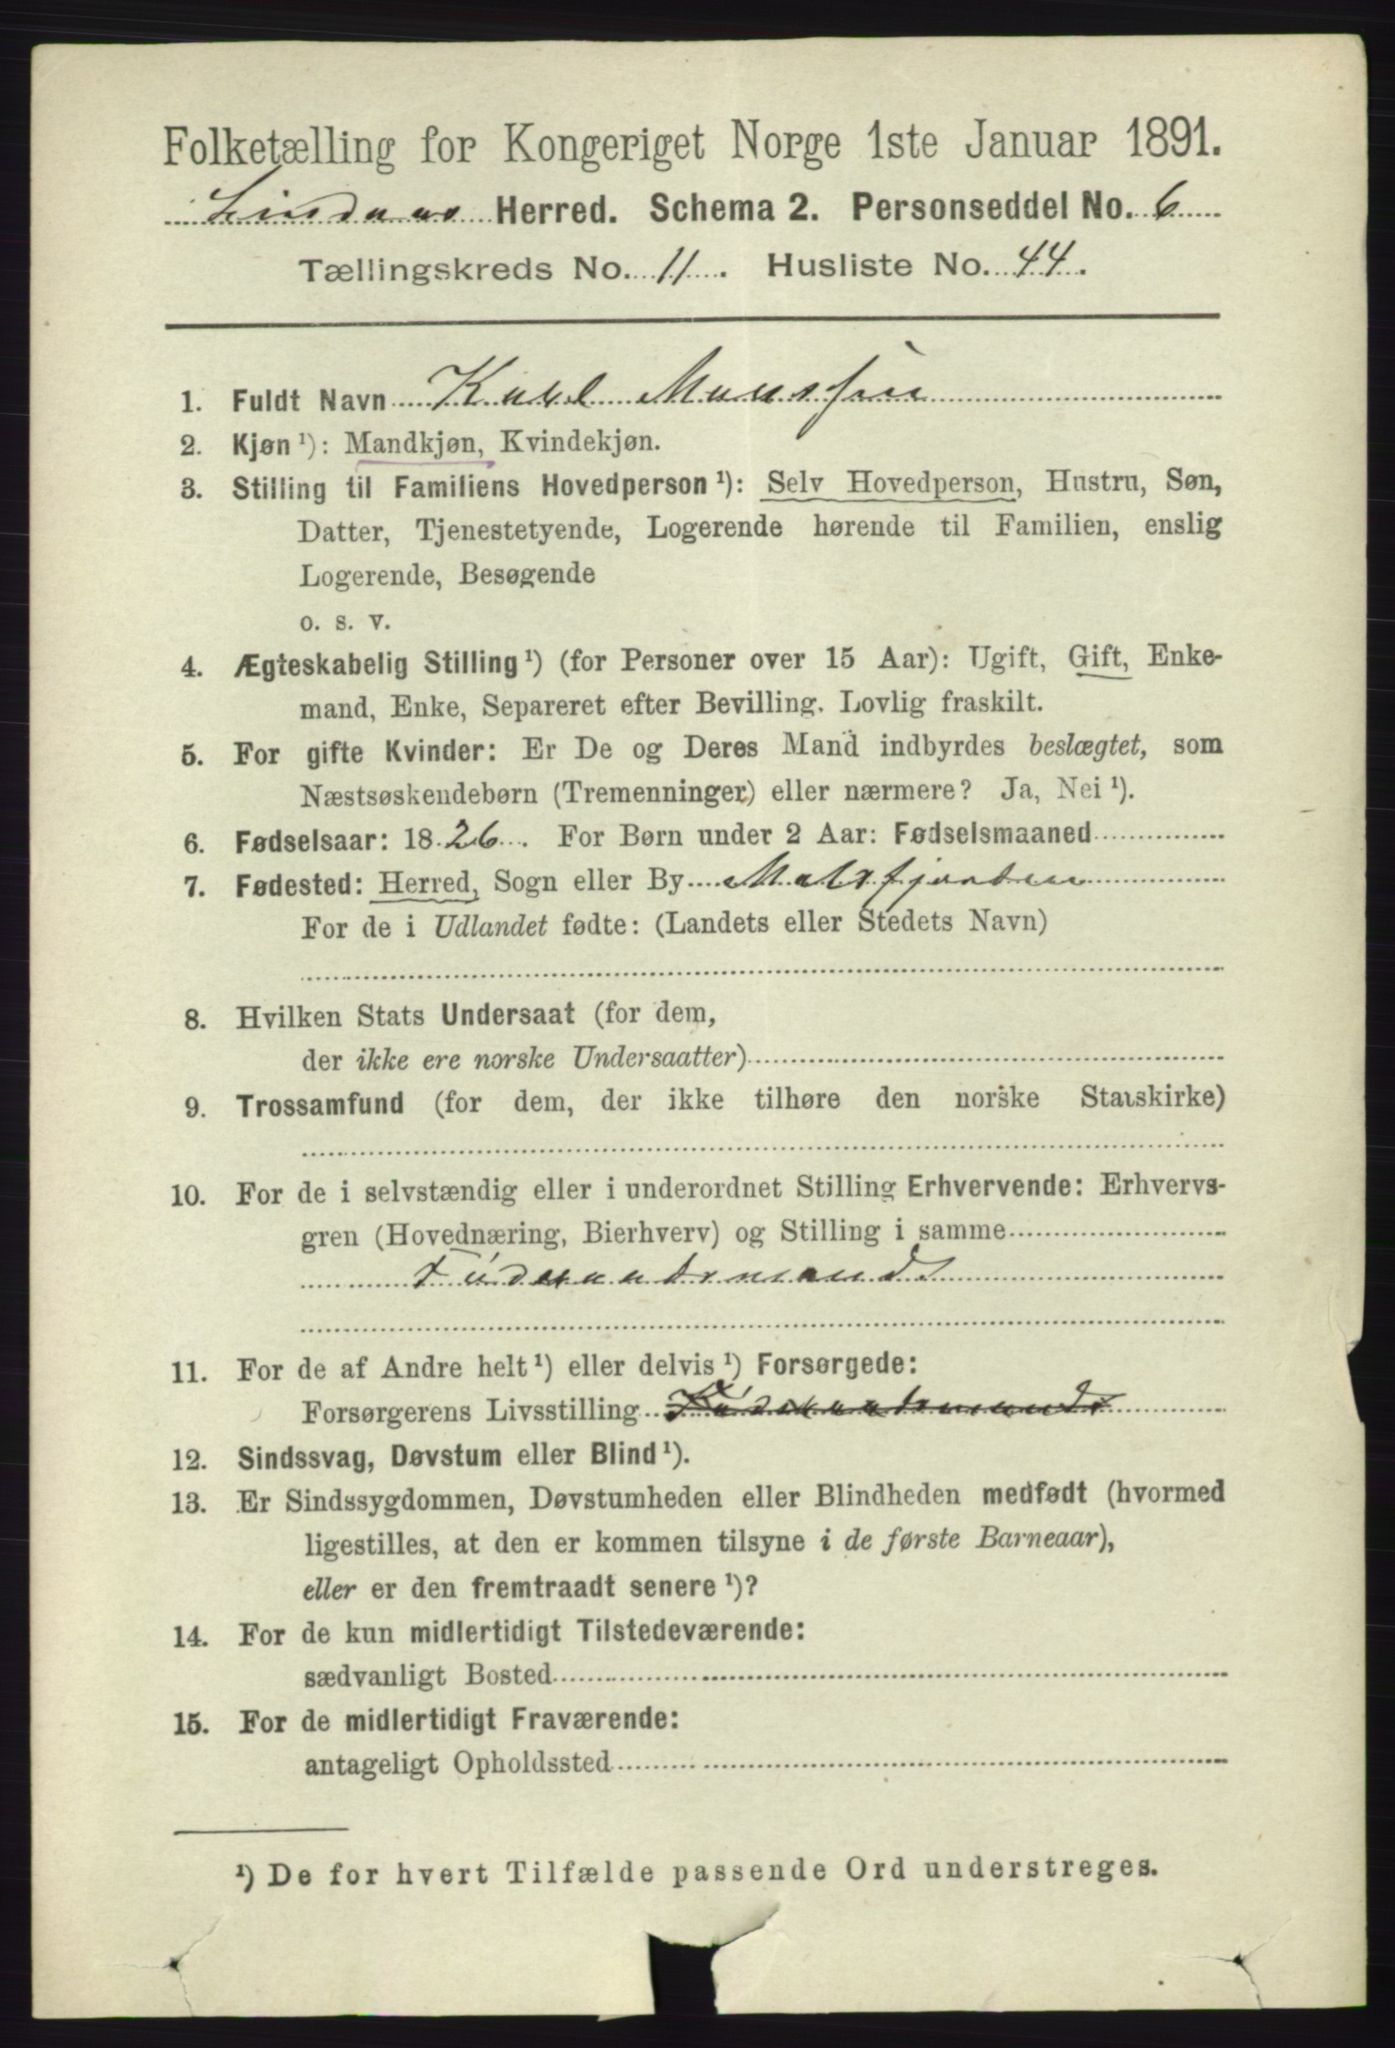 Folketælling for Kongeriget Norge 1ste Januar 1891.
Lindaas Herred. Schema 2. Personseddel No. 6
Tællingskreds No. 11. Husliste No. 44.
1. Fuldt Navn Karl Monssen
2. Kjøn ¹): Mandkjøn, Kvindekjøn.
3. Stilling til Familiens Hovedperson ¹): Selv Hovedperson, Hustru, Søn,
Datter, Tjenestetyende, Logerende hørende til Familien, enslig
Logerende, Besøgende
o. s. v.
4. Ægteskabelig Stilling ¹) (for Personer over 15 Aar): Ugift, Gift, Enke-
mand, Enke, Separeret efter Bevilling. Lovlig fraskilt.
5. For gifte Kvinder: Er De og Deres Mand indbyrdes beslægtet, som
Næstsøskendebørn (Tremenninger) eller nærmere? Ja, Nei ¹).
6. Fødselsaar: 1826. For Børn under 2 Aar: Fødselsmaaned
7. Fødested: Herred, Sogn eller By Molsfjorden
For de i Udlandet fødte: (Landets eller Stedets Navn)
8. Hvilken Stats Undersaat (for dem,
der ikke ere norske Undersaatter)
9. Trossamfund (for dem, der ikke tilhøre den norske Statskirke)
10. For de i selvstændig eller i underordnet Stilling Erhvervende: Erhvervs-
gren (Hovednæring, Bierhverv) og Stilling i samme
Føderaadsmand
11. For de af Andre helt ¹) eller delvis ¹) Forsørgede:
Forsørgerens Livsstilling Føderaadsmand
12. Sindssvag, Døvstum eller Blind ¹).
13. Er Sindssygdommen, Døvstumheden eller Blindheden medfødt (hvormed
ligestilles, at den er kommen tilsyne i de første Barneaar),
eller er den fremtraadt senere ¹)?
14. For de kun midlertidigt Tilstedeværende:
sædvanligt Bosted
15. For de midlertidigt Fraværende:
antageligt Opholdssted
¹) De for hvert Tilfælde passende Ord understreges.